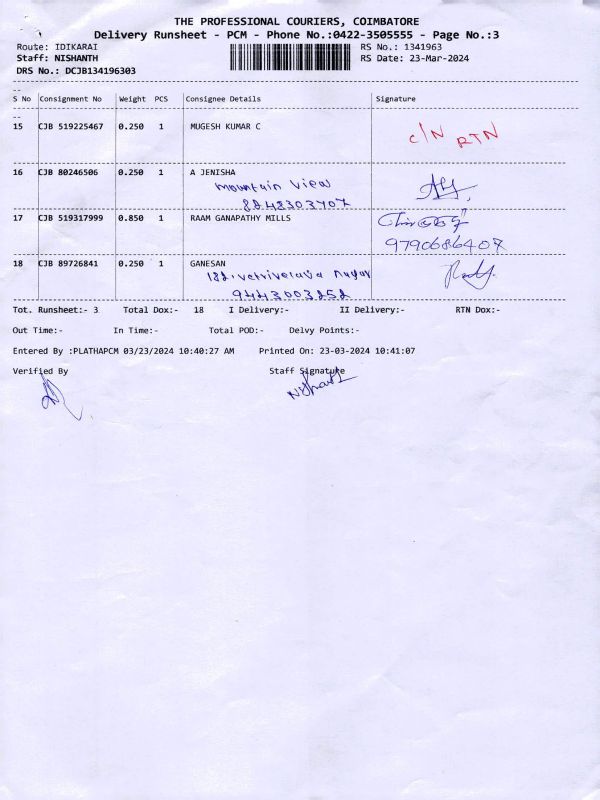 THE PROFESSIONAL COURIERS, COIMBATORE
Delivery Runsheet - PCM - Phone No.:0422-3505555 - Page No.:3
Route: IDIKARAI RS No.: 1341963
Staff: NISHANTH RS Date: 23-Mar-2024
DRS No.: DCJB134196303
S No Consignment No Weight PCS Consignee Details Signature
15 CJB 519225467 0.250 1 MUGESH KUMAR C
C/N RTN
16 CJB 80246506 0.250 1 A JENISHA
mountain view
8848303707
17 CJB 519317999 0.850 1 RAAM GANAPATHY MILLS
9790686407
18 CJB 89726841 0.250 1 GANESAN
9443003252
Tot. Runsheet:- 3 Total Dox:- 18 I Delivery:- II Delivery:- RTN Dox:-
Out Time:- In Time:- Total POD:- Delvy Points:-
Entered By :PLATHAPCM 03/23/2024 10:40:27 AM Printed On: 23-03-2024 10:41:07
Verified By Staff Signatute